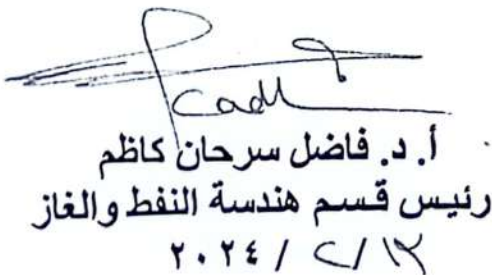 أ. د. فاضل سرحان كاظم
رئيس قسم هندسة النفط والغاز
٢٠٢٤ / ٢ /